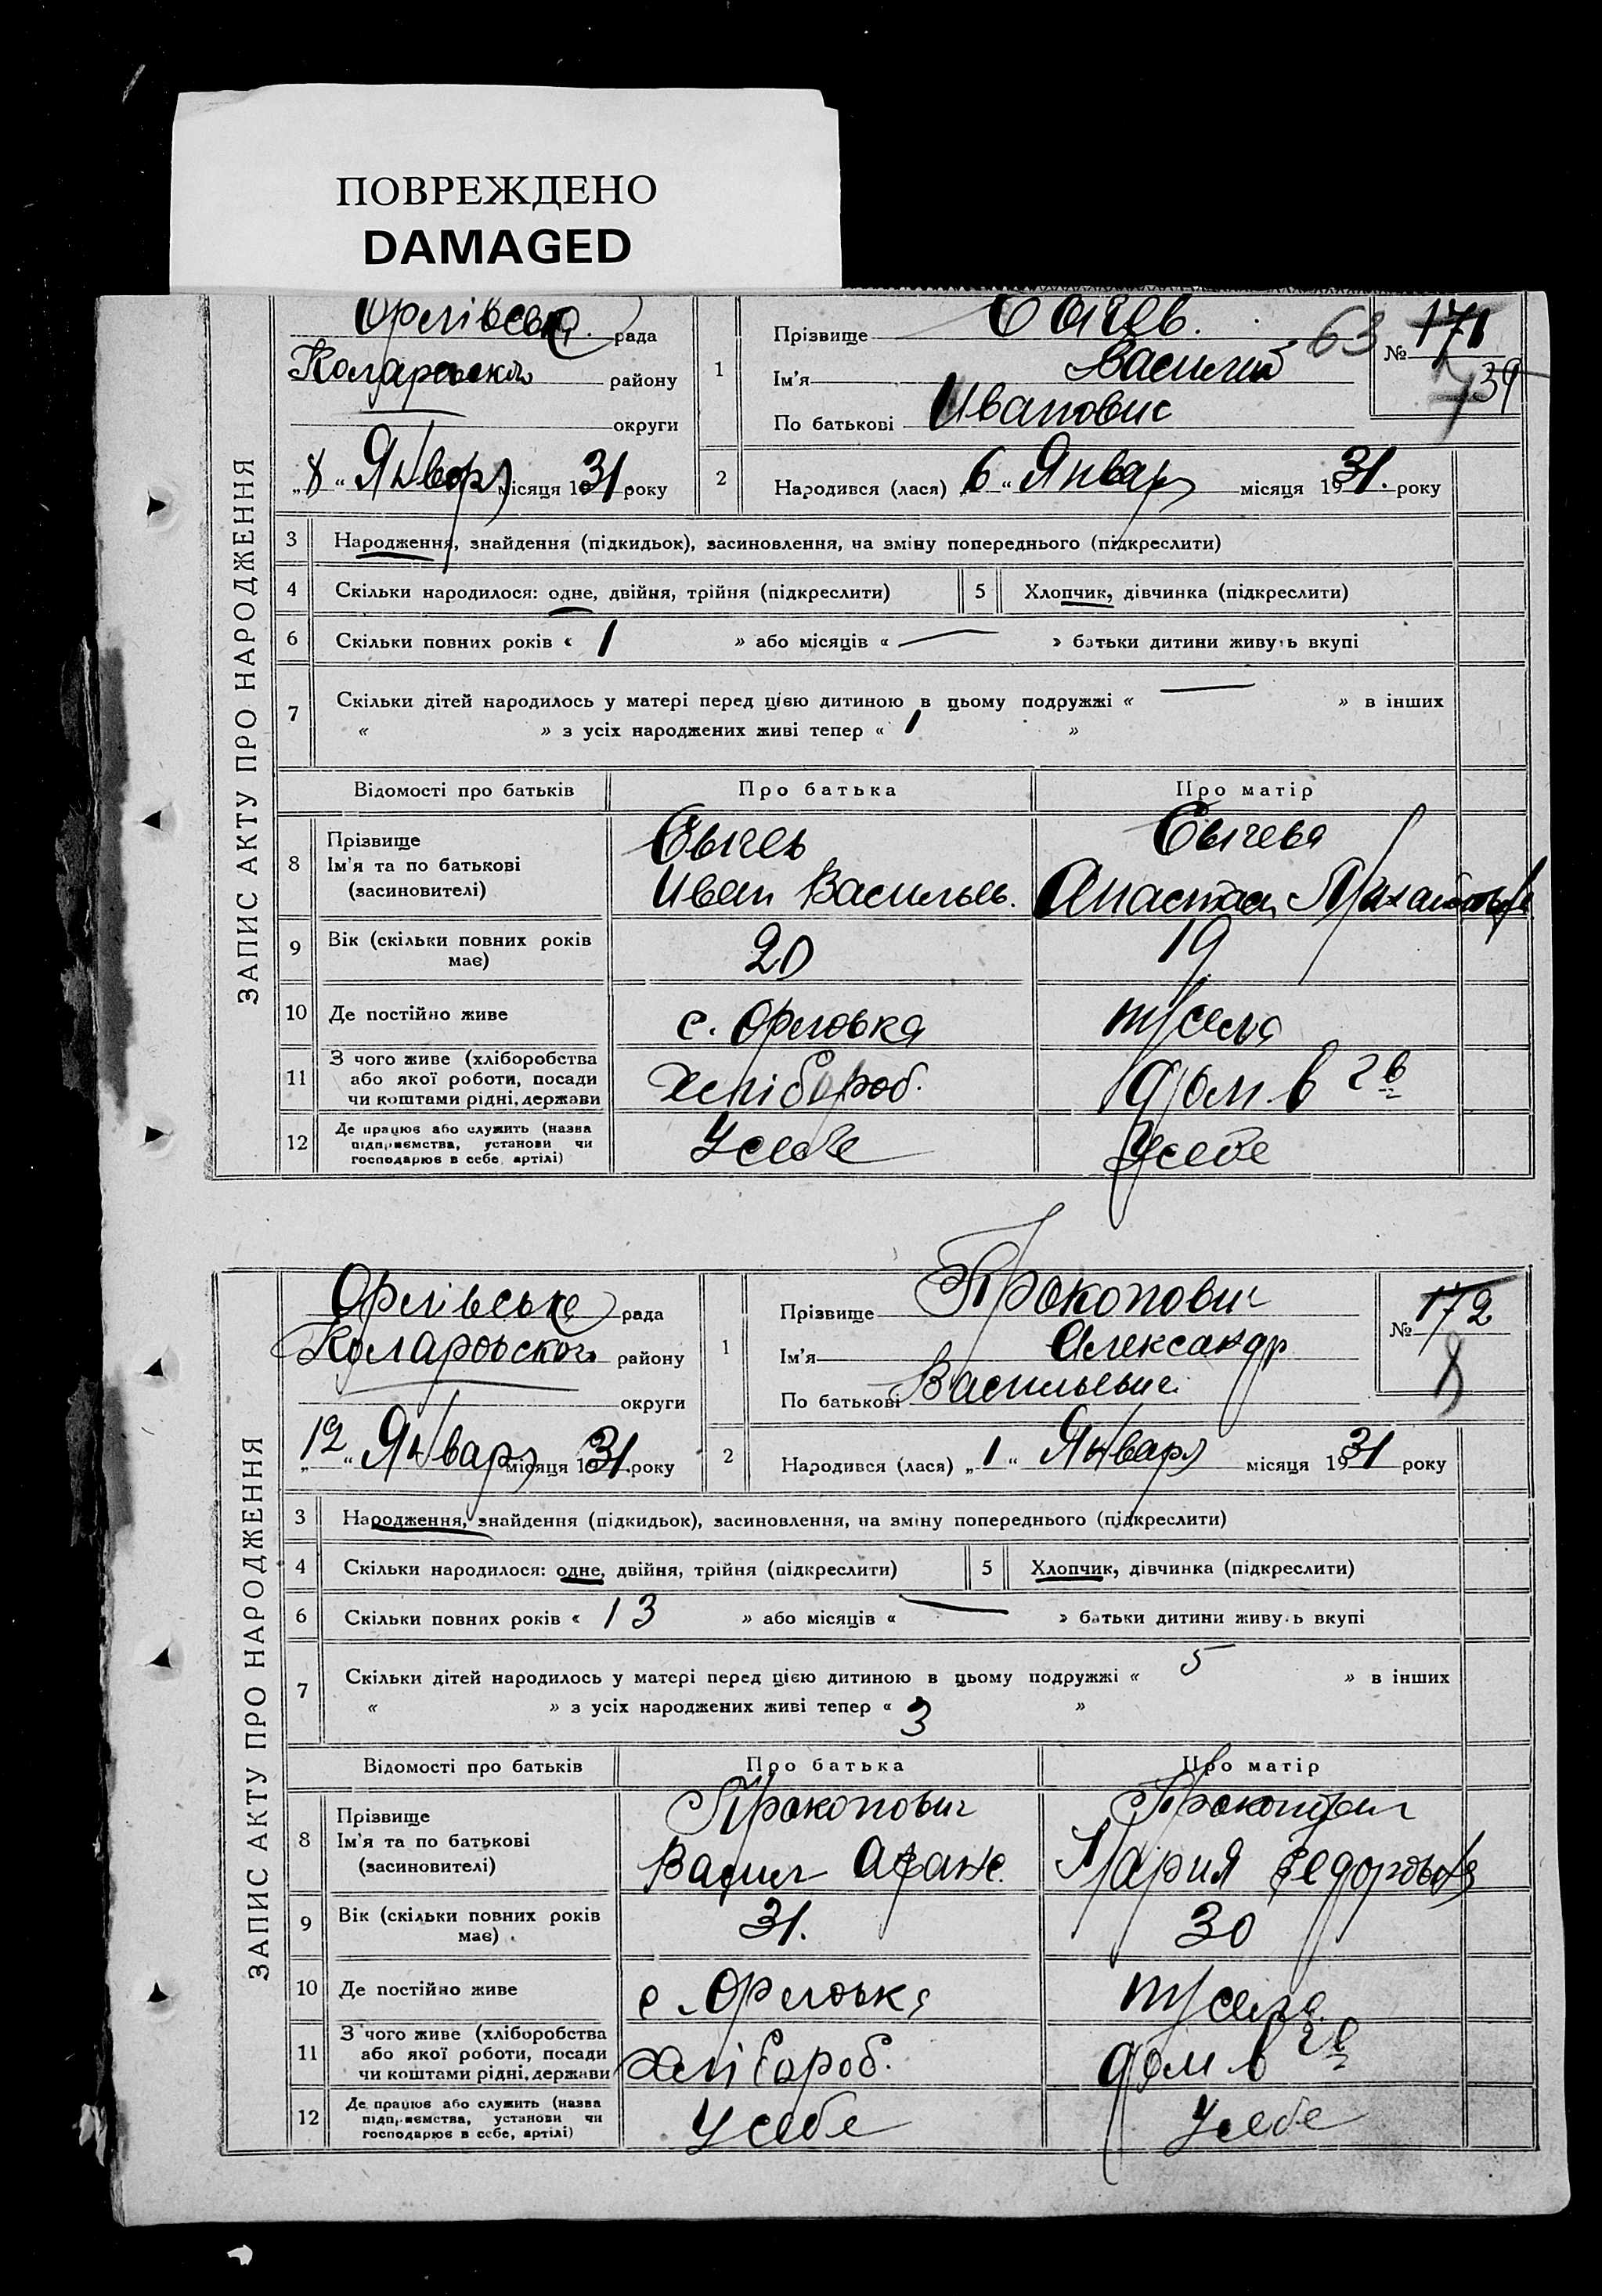 ПОВРЕЖДЕНО
DAMAGED
ЗАПИС АКТУ ПРО НАРОДЖЕННЯ
Орлівська рада
району
округи
„8“ Январ місяця 1931 року
1
Прізвище Сычев.
Ім'я Василий
По батькові Иванович
63
№ 171
739
2 Народився (лася) „6“ Январ місяця 1931. року
3 Народження, знайдення (підкидьок), засиновлення, на зміну попереднього (підкреслити)
4 Скільки народилося: одне, двійня, трійня (підкреслити) 5 Хлопчик, дівчинка (підкреслити)
6 Скільки повних років « 1 » або місяців « — » батьки дитини живуть вкупі
7 Скільки дітей народилось у матері перед цією дитиною в цьому подружжі « — » в інших
« » з усіх народжених живі тепер « 1 »
Відомості про батьків Про батька Про матір
8 Прізвище
Ім'я та по батькові
(засиновителі)
Сычев
Иван Васильев.
Сычева
Анастас Михайловна
9 Вік (скільки повних років має) 20 19
10 Де постійно живе с. Орловка т/села
11 З чого живе (хліборобства
або якої роботи, посади
чи коштами рідні, держави
хлібороб. дом. в гв
12 Де працює або служить (назва
підприємства, установи чи
господарює в себе, артілі)
У себе У себе
ЗАПИС АКТУ ПРО НАРОДЖЕННЯ
Орлівська рада
Коларовского району
округи
„12“ Январ місяця 1931. року
1
Прізвище Прокопович
Ім'я Александр
По батькові Васильевич
№ 172
8
2 Народився (лася) „1“ Январ місяця 1931 року
3 Народження, знайдення (підкидьок), засиновлення, на зміну попереднього (підкреслити)
4 Скільки народилося: одне, двійня, трійня (підкреслити) 5 Хлопчик, дівчинка (підкреслити)
6 Скільки повних років « 13 » або місяців « — » батьки дитини живуть вкупі
7 Скільки дітей народилось у матері перед цією дитиною в цьому подружжі « 5 » в інших
« » з усіх народжених живі тепер « 3 »
Відомості про батьків Про батька Про матір
8 Прізвище
Ім'я та по батькові
(засиновителі)
Прокопович
Васил Афанс.
Прокопович
Мария Федоровна
9 Вік (скільки повних років має) 31. 30
10 Де постійно живе с. Орловка т/села
11 З чого живе (хліборобства
або якої роботи, посади
чи коштами рідні, держави
хлібороб. дом в гв
12 Де працює або служить (назва
підприємства, установи чи
господарює в себе, артілі)
У себе У себе